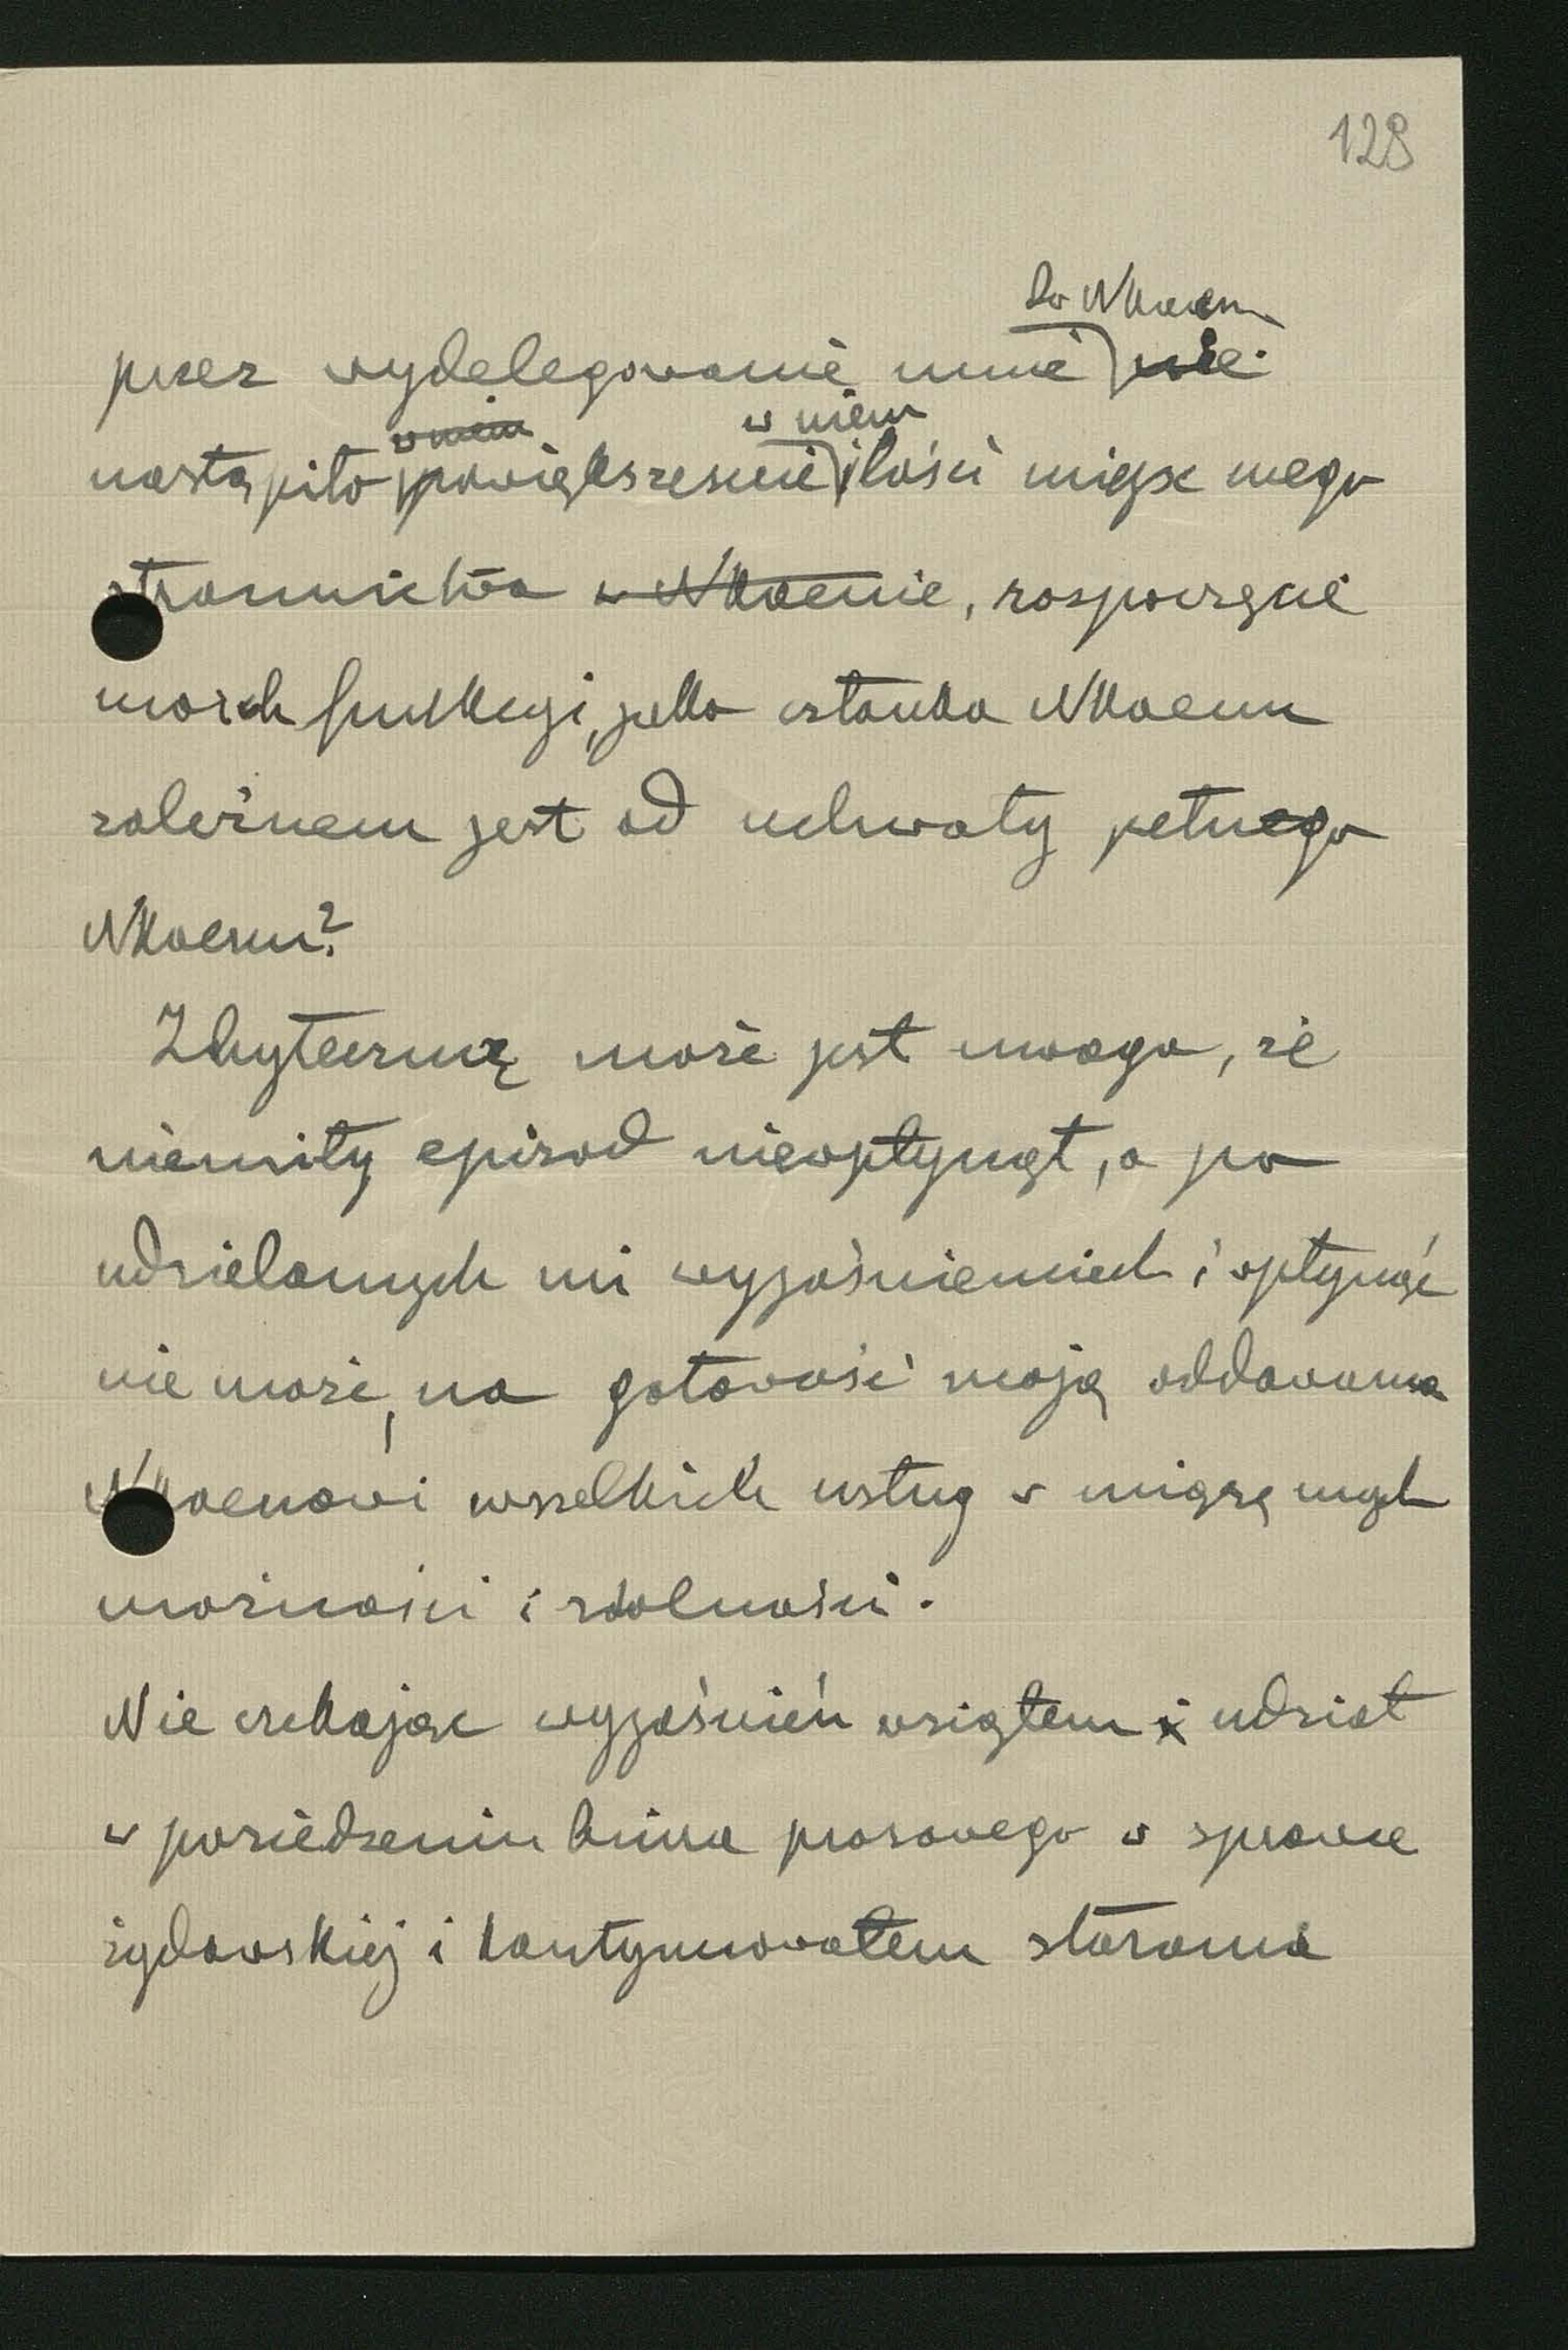 128
do Nkaenu
przez wydelegowanie mnie nie
w niem w niem
nastąpiło powiększenie ilości miejsc mego
stronnictwa w Nkaenie, rozpoczęcie
moich funkcyi, jako członka Nkaenu
zależnem jest od uchwały pełnego
Nkaenu?
Zbyteczną może jest uwaga, że
niemiły epizod nie wpłynął, a po
udzielonych mi wyjaśnieniach i wpłynąć
nie może, na gotowość moją oddawania
Nkaenowi wszelkich usług w miarę mych
możności i zdolności.
Nie czekając wyjaśnień wziąłem i udział
w posiedzeniu biura prasowego w sprawie
żydowskiej i kontynuowałem starania